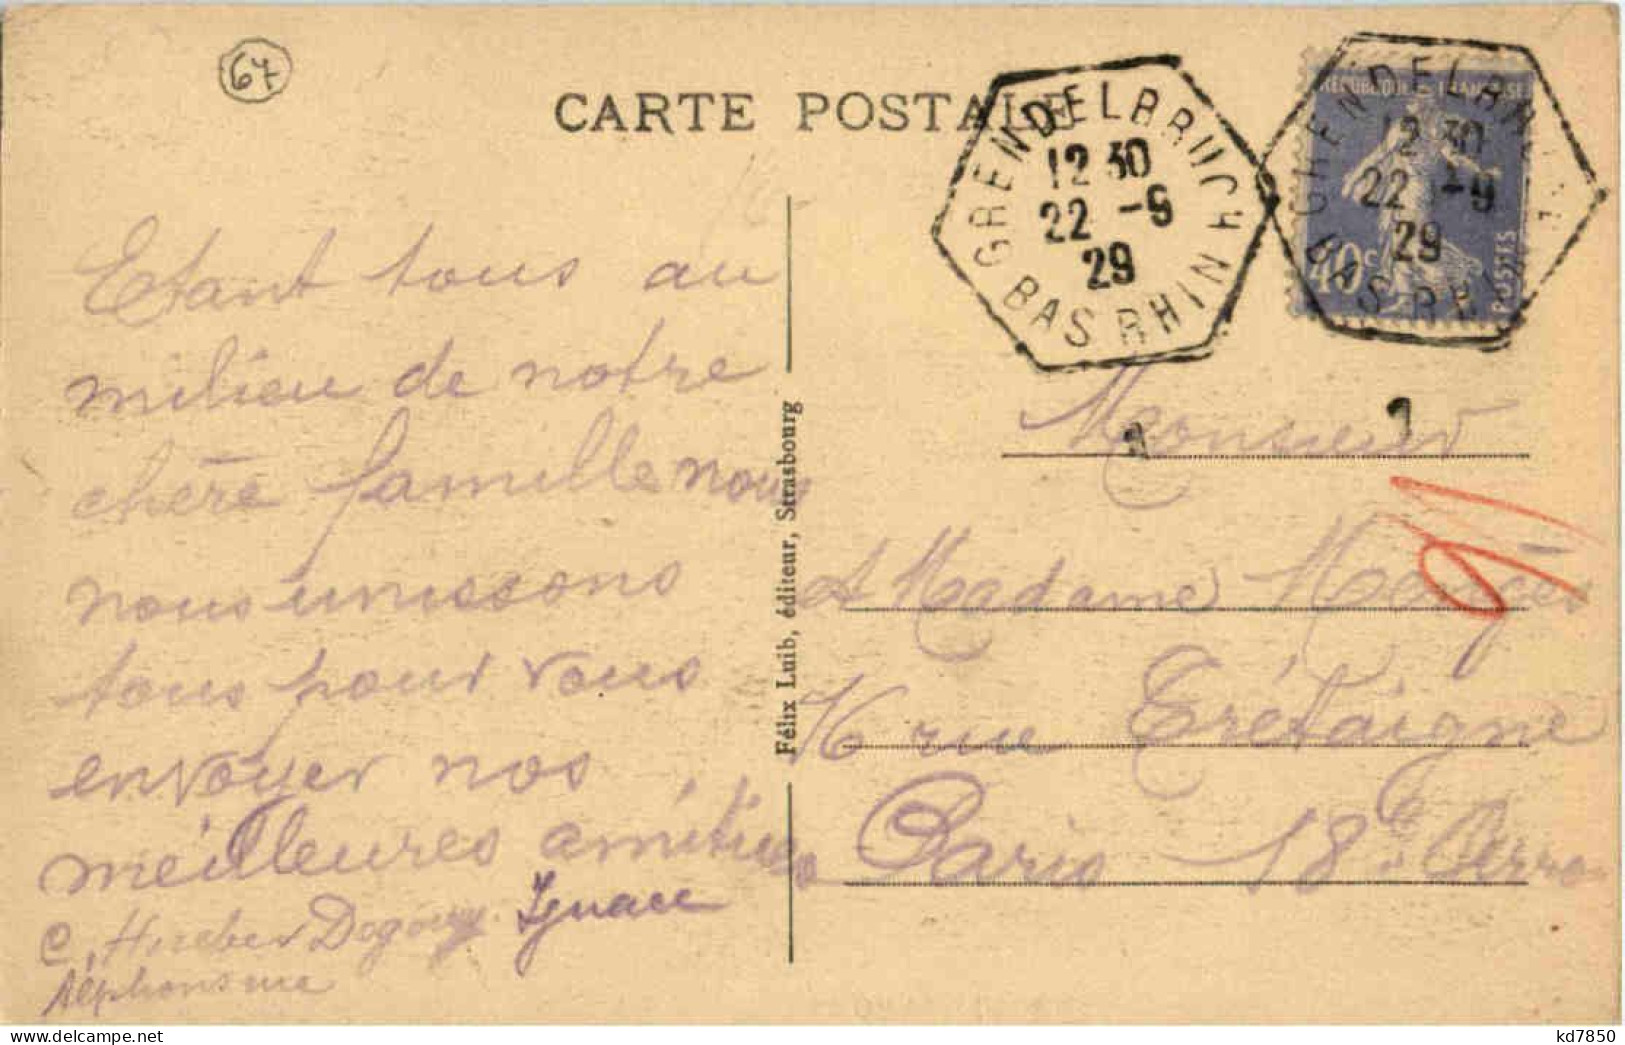 67
CARTE POSTALE
GRENDELBRUCH
12 30
22 -9
29
BAS RHIN
GRENDELBRUCH
12 30
22 -9
29
BAS RHIN
REPUBLIQUE FRANÇAISE
40c
POSTES
Etant tous au
milieu de notre
chère famille nous
nous unissons
tous pour vous
envoyer nos
meilleures amitiées
Ignace
Alphonsine
Félix Luib, éditeur, Strasbourg
1 1
Monsieur
et Madame
16 rue Trétaigne
Paris 18e Arro
kd7850